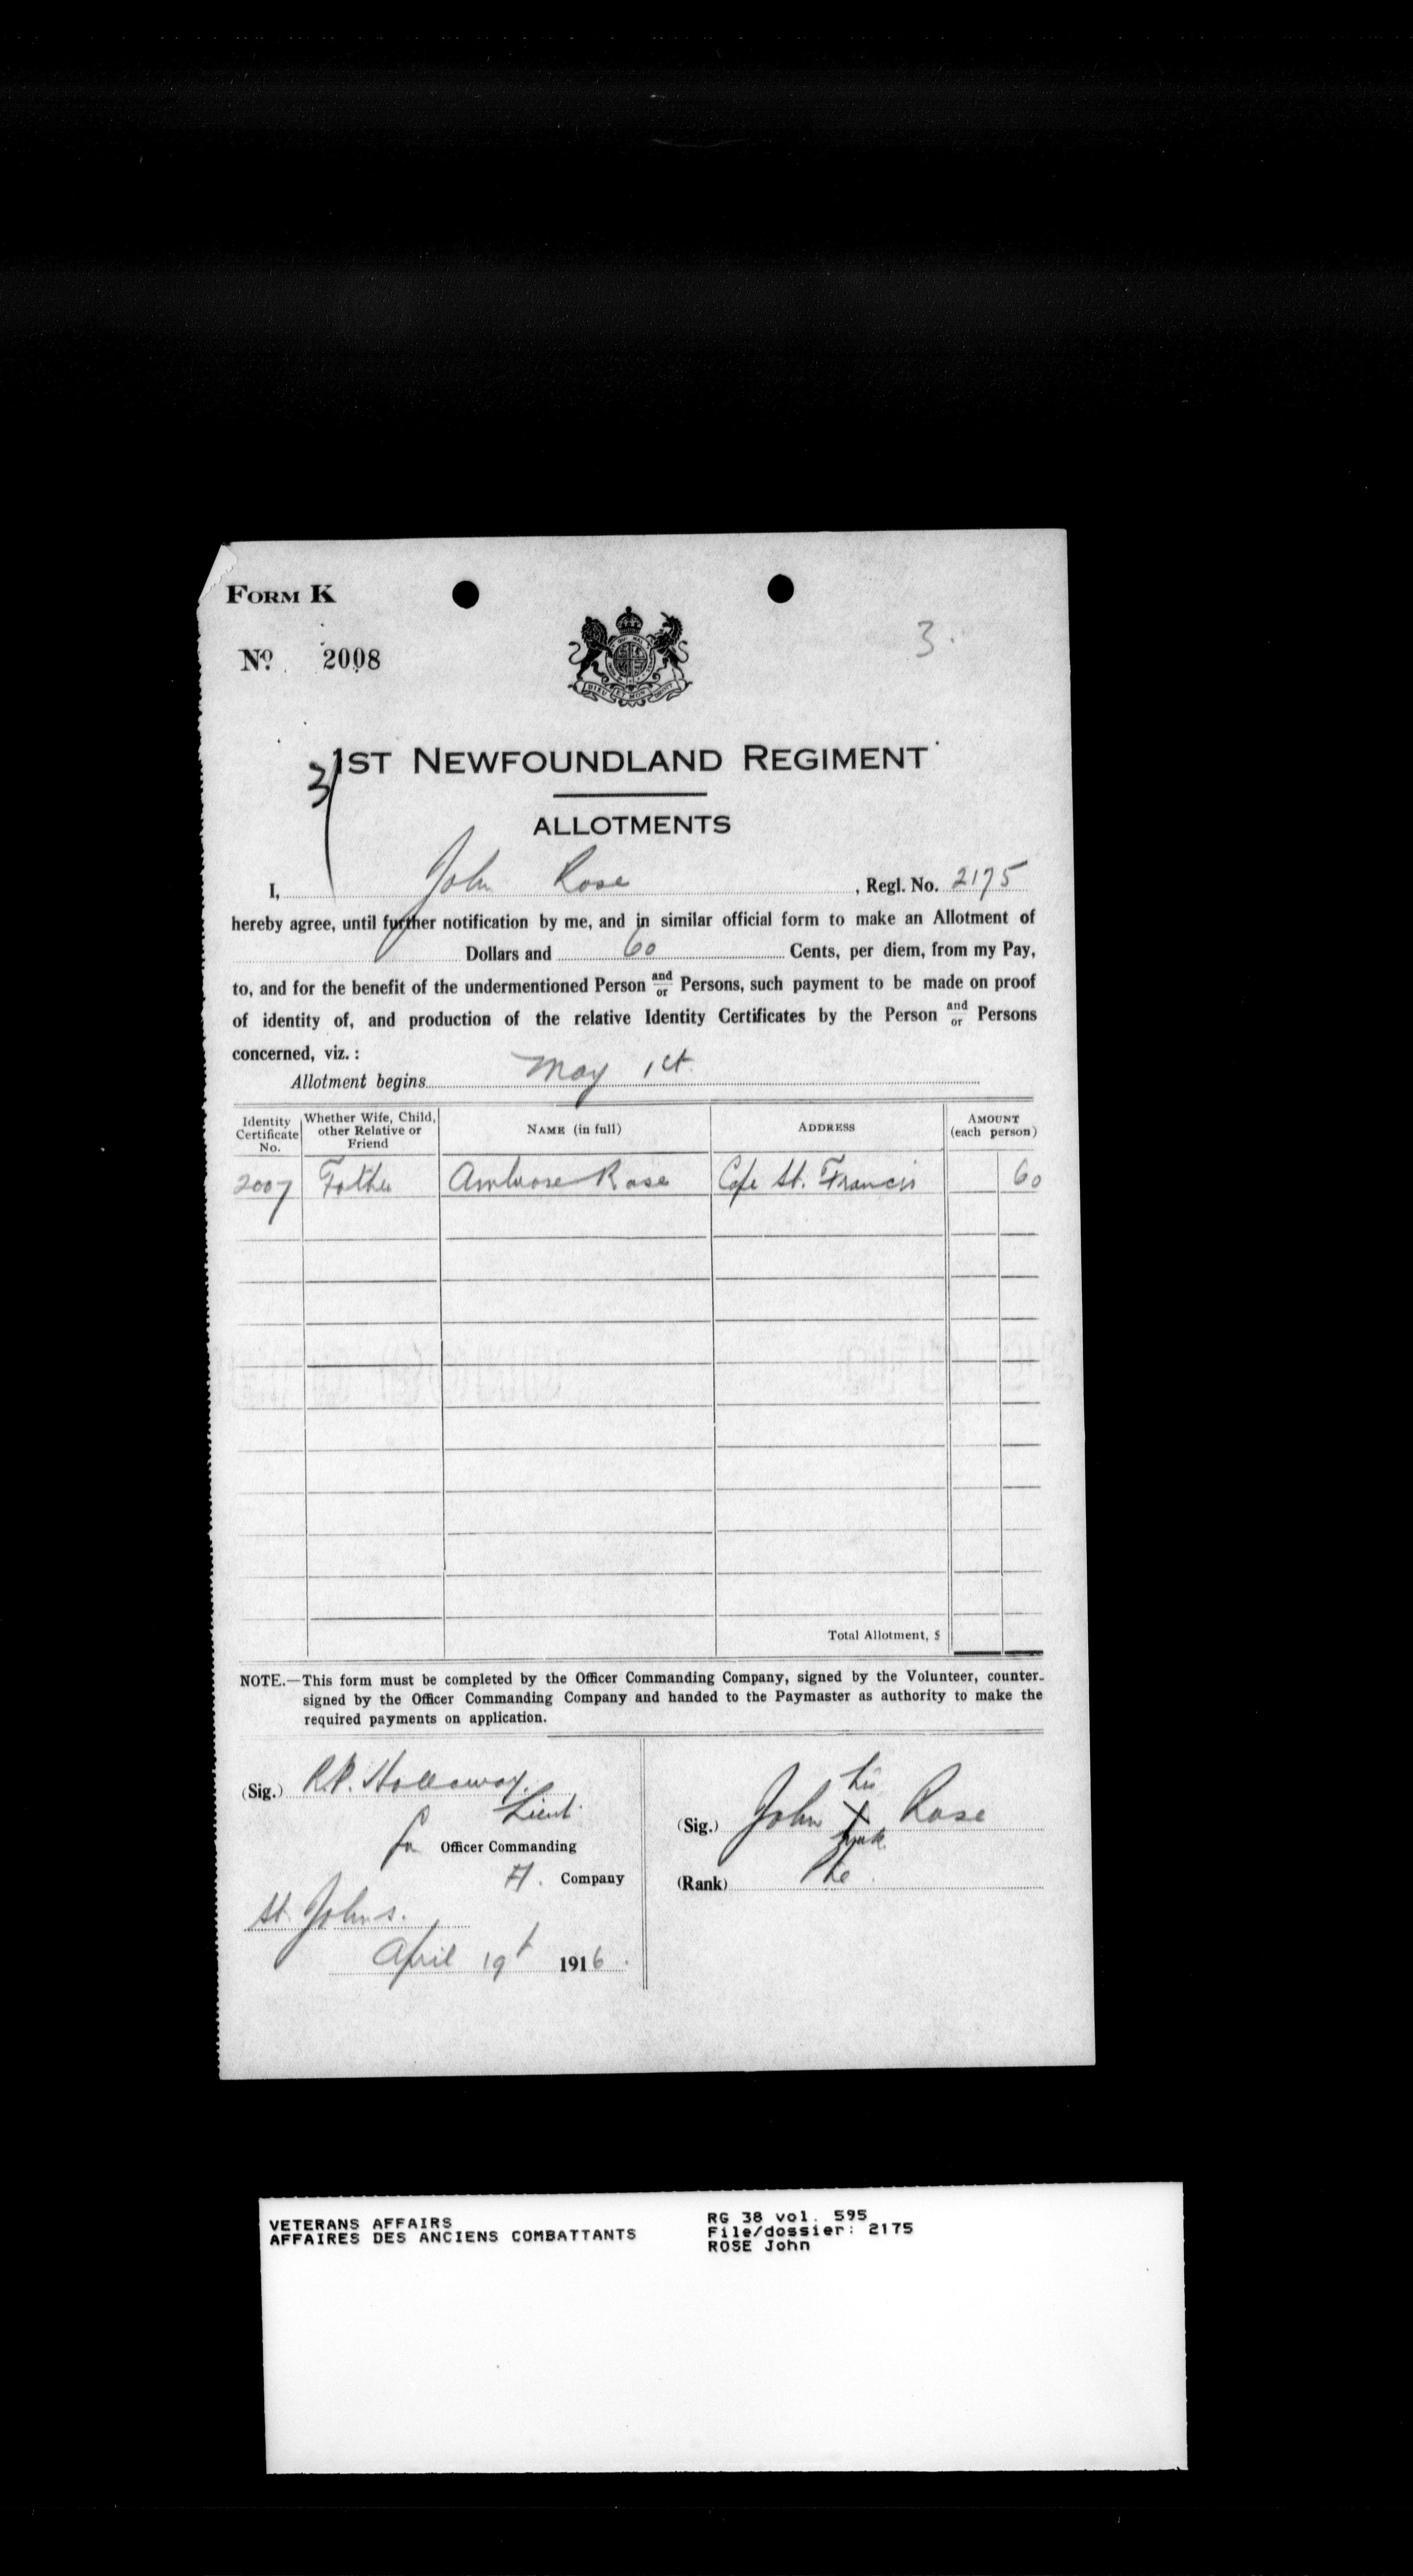 FORM K
No. 2008
3.
DIEU ET MON DROIT
3/
1ST NEWFOUNDLAND REGIMENT
ALLOTMENTS
I, John Rose, Regl. No. 2175
hereby agree, until further notification by me, and in similar official form to make an Allotment of
Dollars and 60 Cents, per diem, from my Pay,
to, and for the benefit of the undermentioned Person and/or Persons, such payment to be made on proof
of identity of, and production of the relative Identity Certificates by the Person and/or Persons
concerned, viz.:
Allotment begins May 1st
Identity Certificate No. Whether Wife, Child, other Relative or Friend NAME (in full) ADDRESS AMOUNT (each person)
2007 Father Ambrose Rose Cape St. Francis 60
Total Allotment, $
NOTE.—This form must be completed by the Officer Commanding Company, signed by the Volunteer, counter-
signed by the Officer Commanding Company and handed to the Paymaster as authority to make the
required payments on application.
(Sig.) R.P. Holloway.
Lieut.
for Officer Commanding
H. Company
St. Johns.
April 19t 1916.
his
(Sig.) John X Rose
mark
(Rank) Pte.
VETERANS AFFAIRS
AFFAIRES DES ANCIENS COMBATTANTS
RG 38 vol. 595
File/dossier: 2175
ROSE John